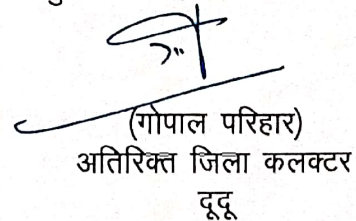 (गोपाल परिहार)
अतिरिक्त जिला कलक्टर
दूदू